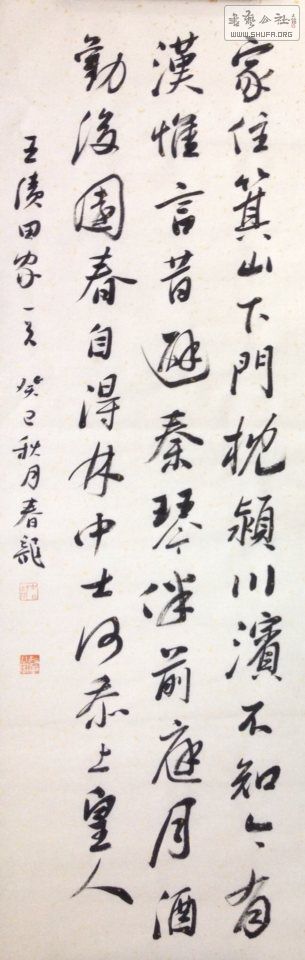 書藝公社
WWW.SHUFA.ORG
家住箕山下門枕潁川濱不知今有
漢惟言昔避秦琴伴前庭月酒
勸後園春自得林中士何忝上皇人
王績田家一首 癸巳秋月春龍